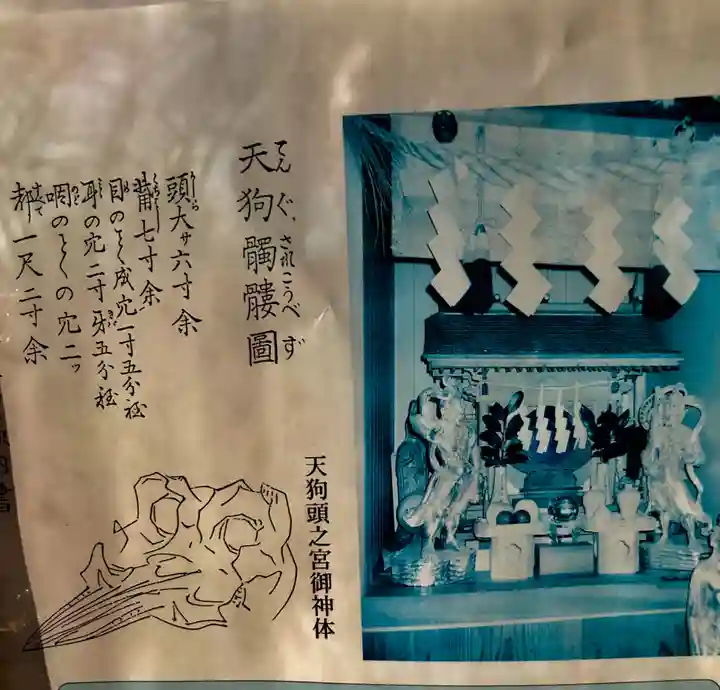 天狗髑髏圖
てんぐ、されこうべず
頭大サ六寸余
かしら
觜七寸余
くちばし
目のとく成穴一寸五分程
耳の穴二寸牙五分程
咽のとくの穴二ッ
のど
都一尺二寸余
すべて
天狗頭之宮御神体